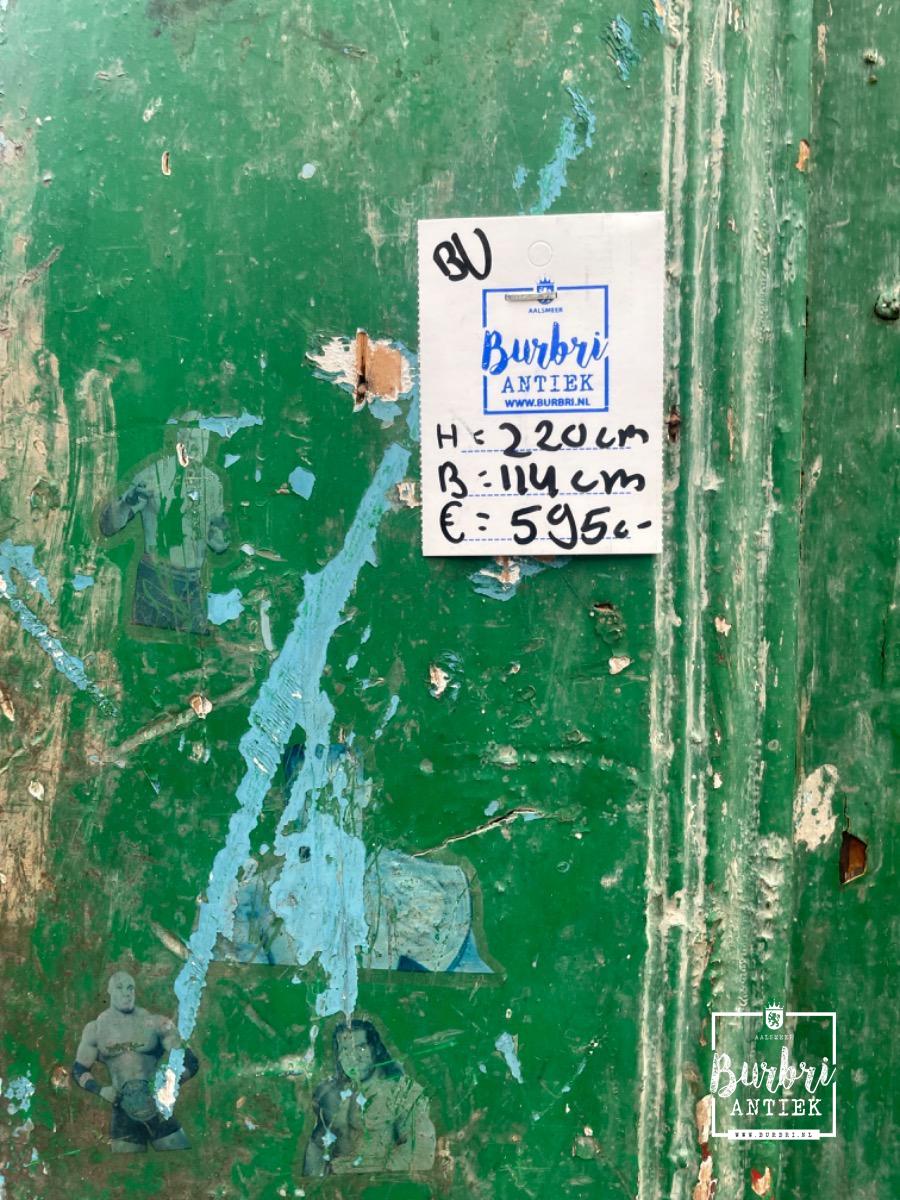 BU
AALSMEER
Burbri
ANTIEK
WWW.BURBRI.NL
H = 220 cm
B = 114 cm
€ = 595,-
AALSMEER
Burbri
ANTIEK
WWW.BURBRI.NL